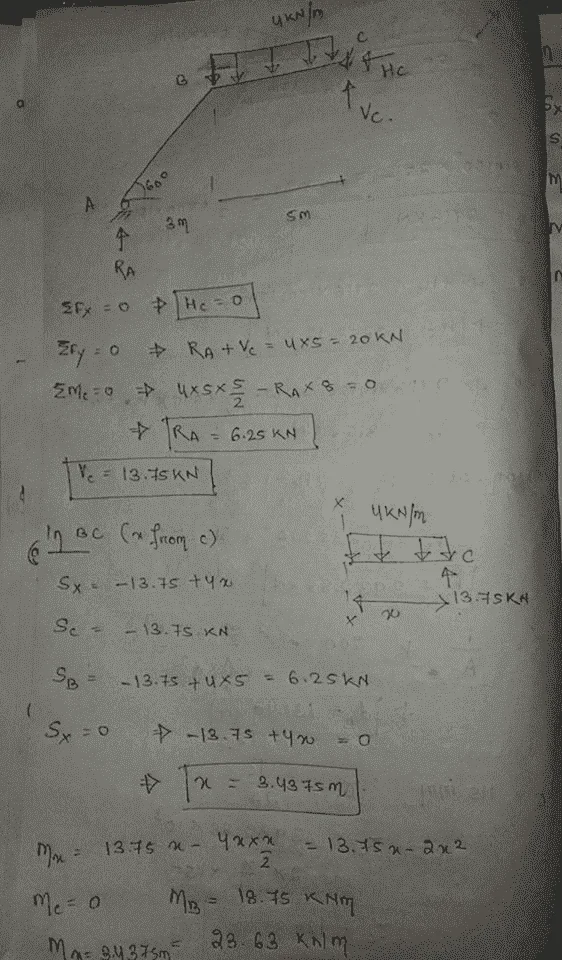 4KN/m
C
B
HC
VC.
60°
A
3m
5m
RA
ΣFx = 0 ⇒ HC = 0
ΣFy = 0 ⇒ RA + VC = 4×5 = 20 KN
ΣMc = 0 ⇒ 4×5×5/2 - RA × 8 = 0
⇒ RA = 6.25 KN
VC = 13.75 KN
In BC (x from c)
X 4KN/m
C
13.75KN
X x
Sx = -13.75 + 4x
Sc = -13.75 KN
SB = -13.75 + 4×5 = 6.25 KN
Sx = 0 ⇒ -13.75 + 4x = 0
⇒ x = 3.4375m
Mx = 13.75 x - 4x × x/2 = 13.75x - 2x2
Mc = 0 MB = 18.75 KNm
Mx = 3.4375m = 23.63 KN/m